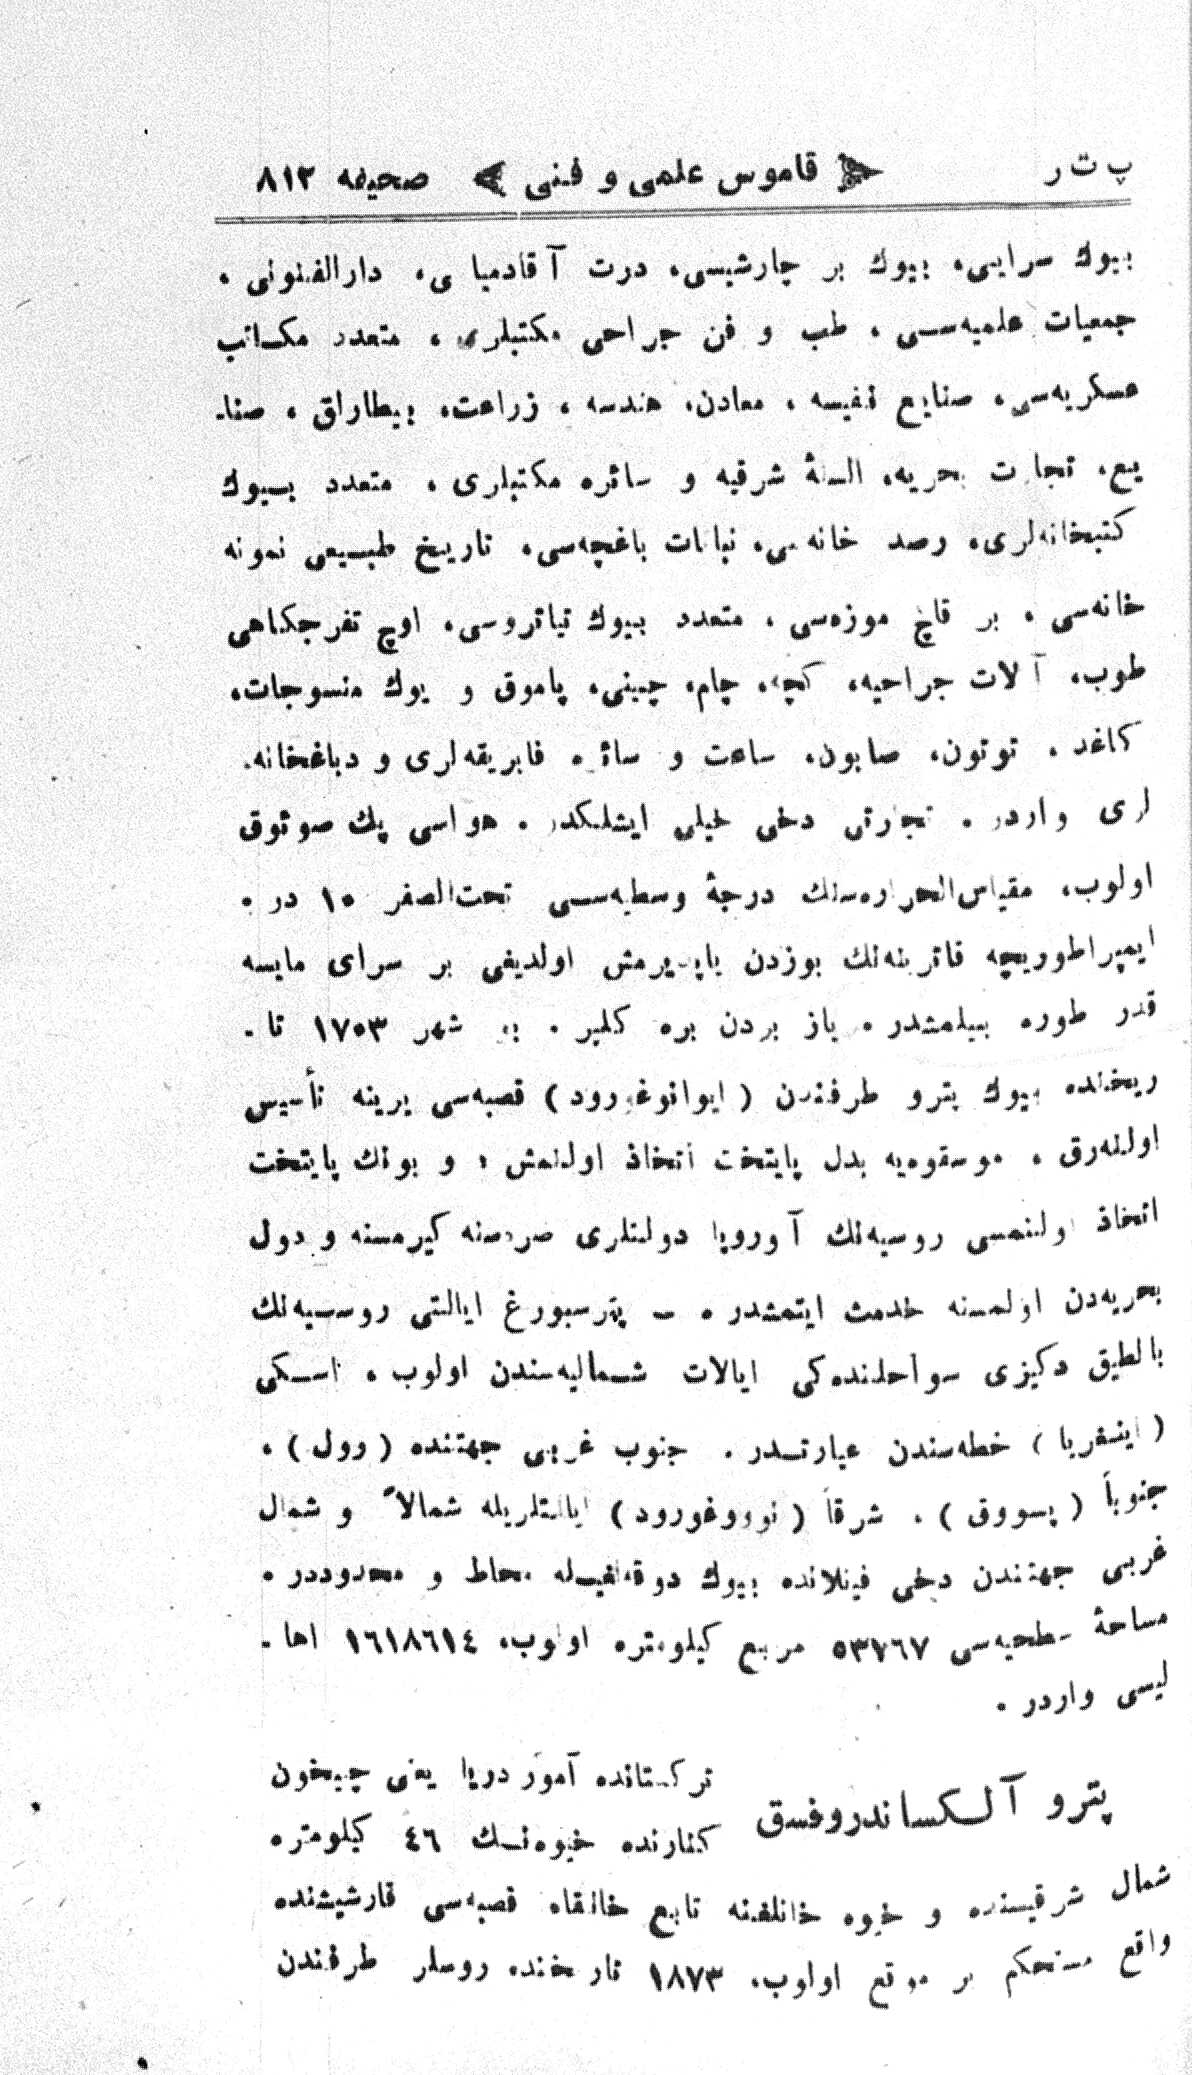 پ ت ر قاموس علمی و فنی صحیفه ٨١٣
بیوك سرایی، بیوك بر چارشیسی، درت آقادمیا ی، دارالفنونی ،
جمعیات علمیه‌سی ، طب و فن جراحی مکتبلری ، متعدد مکاتب
عسکریه‌سی، صنایع نفیسه ، معادن، هندسه ، زراعت، بیطاراق ، صنا-
یع، تجارت بحریه، السنهٔ شرقیه و سائره مکتبلری ، متعدد بیوك
کتبخانه‌لری، رصد خانه‌سی، نباتات باغچه‌سی، تاریخ طبیعی نمونه
خانه‌سی ، بر قاچ موزه‌سی ، متعدد بیوك تیاتروسی، اوچ تفرجکاهی
طوب، آلات جراحیه، کچه، چام، چینی، پاموق و یوك منسوجات،
کاغد ، توتون، صابون، ساعت و سائره فابریقه‌لری و دباغخانه-
لری واردر . تجارتی دخی خیلی ایشلکدر . هواسی پك صوئوق
اولوب، مقیاس‌الحراره‌سنك درجهٔ وسطیه‌سی تحت‌الصفر ١٥ در .
ایمپراطوریچه قاترینه‌نك بوزدن یاپدیرمش اولدیغی بر سرای مایسه
قدر طوره بیلمشدر . یاز بردن بره کلیر . بو شهر ١٧٥٣ تا-
ریخنده بیوك پترو طرفندن (ایوانوغورود) قصبه‌سی یرینه تأسیس
اولنه‌رق ، موسقوه‌یه بدل پایتخت اتخاذ اولنمش ؛ و بونك پایتخت
اتخاذ اولنمسی روسیه‌نك آوروپا دولتلری صره‌سنه کیرمسنه و دول
بحریه‌دن اولمسنه خدمت ایتمشدر . ــ پترسبورغ ایالتی روسیه‌نك
بالطیق دکیزی سواحلنده‌کی ایالات شمالیه‌سندن اولوب ، اسکی
(اینغریا) خطه‌سندن عبارتدر . جنوب غربی جهتنده (رول) ،
جنوباً (پسووق) ، شرقاً (نووغورود) ایالتلریله شمالاً و شمال
غربی جهتندن دخی فینلانده بیوك دوقه‌لغیله محاط و محدوددر .
مساحهٔ سطحیه‌سی ٥٣٧٦٧ مربع کیلومتره اولوب، ١٦١٨٦١٤ اها-
لیسی واردر .
پترو آلکساندروفسق ترکستانده آمور دریا یعنی جیحون
کنارنده خیوه‌نك ٤٦ کیلومتره
شمال شرقیسنده و خیوه خانلغنه تابع خانقاه قصبه‌سی قارشیشنده
واقع مستحکم بر موقع اولوب، ١٨٧٣ تاریخنده روسلر طرفندن